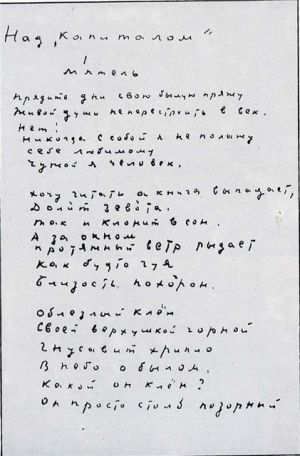 Над „Капиталом“
1
Мятель
Прядите дни свою былую пряжу
Живой души не перестроить в век.
Нет!
Никогда с собой я не полажу
Себе любимому
Чужой я человек.
Хочу читать а книга выпадает,
Долит зевота.
Так и клонит в сон.
А за окном
протяжный ветр рыдает
Как будто чуя
Близость похорон.
Облезлый клён
Своей верхушкой чорной
Гнусавит хрипло
В небо о былом.
Какой он клён?
Он просто столб позорный